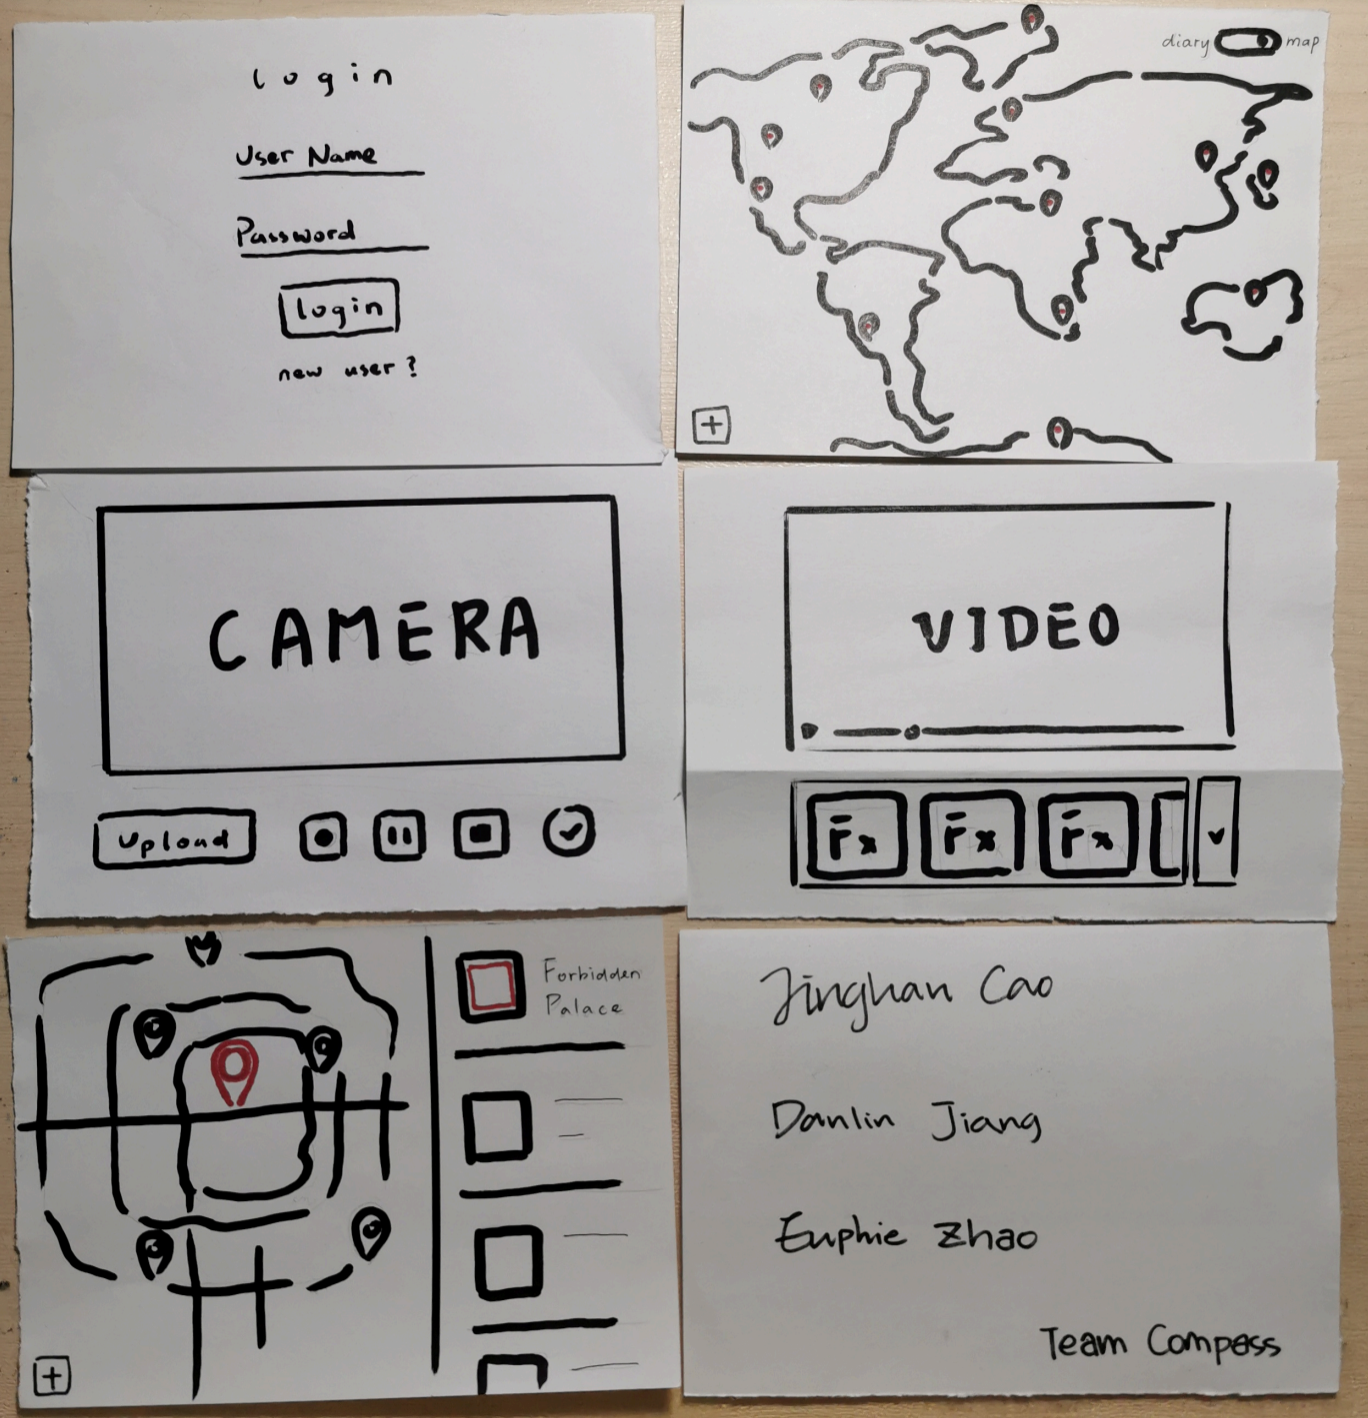 login
User Name
Password
login
new user?
diary map
CAMERA
Upload
VIDEO
Fx Fx Fx
Forbidden
Palace
Jinghan Cao
Danlin Jiang
Euphie Zhao
Team Compass